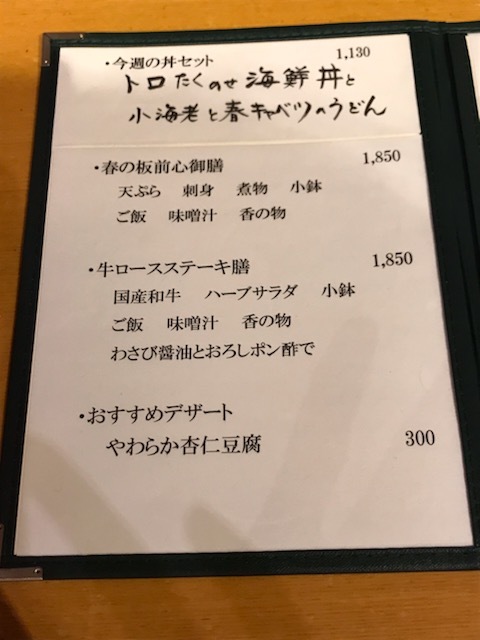 ・今週の丼セット 1,130
トロたくのせ海鮮丼と
小海老と春キャベツのうどん
・春の板前心御膳 1,850
天ぷら 刺身 煮物 小鉢
ご飯 味噌汁 香の物
・牛ロースステーキ膳 1,850
国産和牛 ハーブサラダ 小鉢
ご飯 味噌汁 香の物
わさび醤油とおろしポン酢で
・おすすめデザート
やわらか杏仁豆腐 300